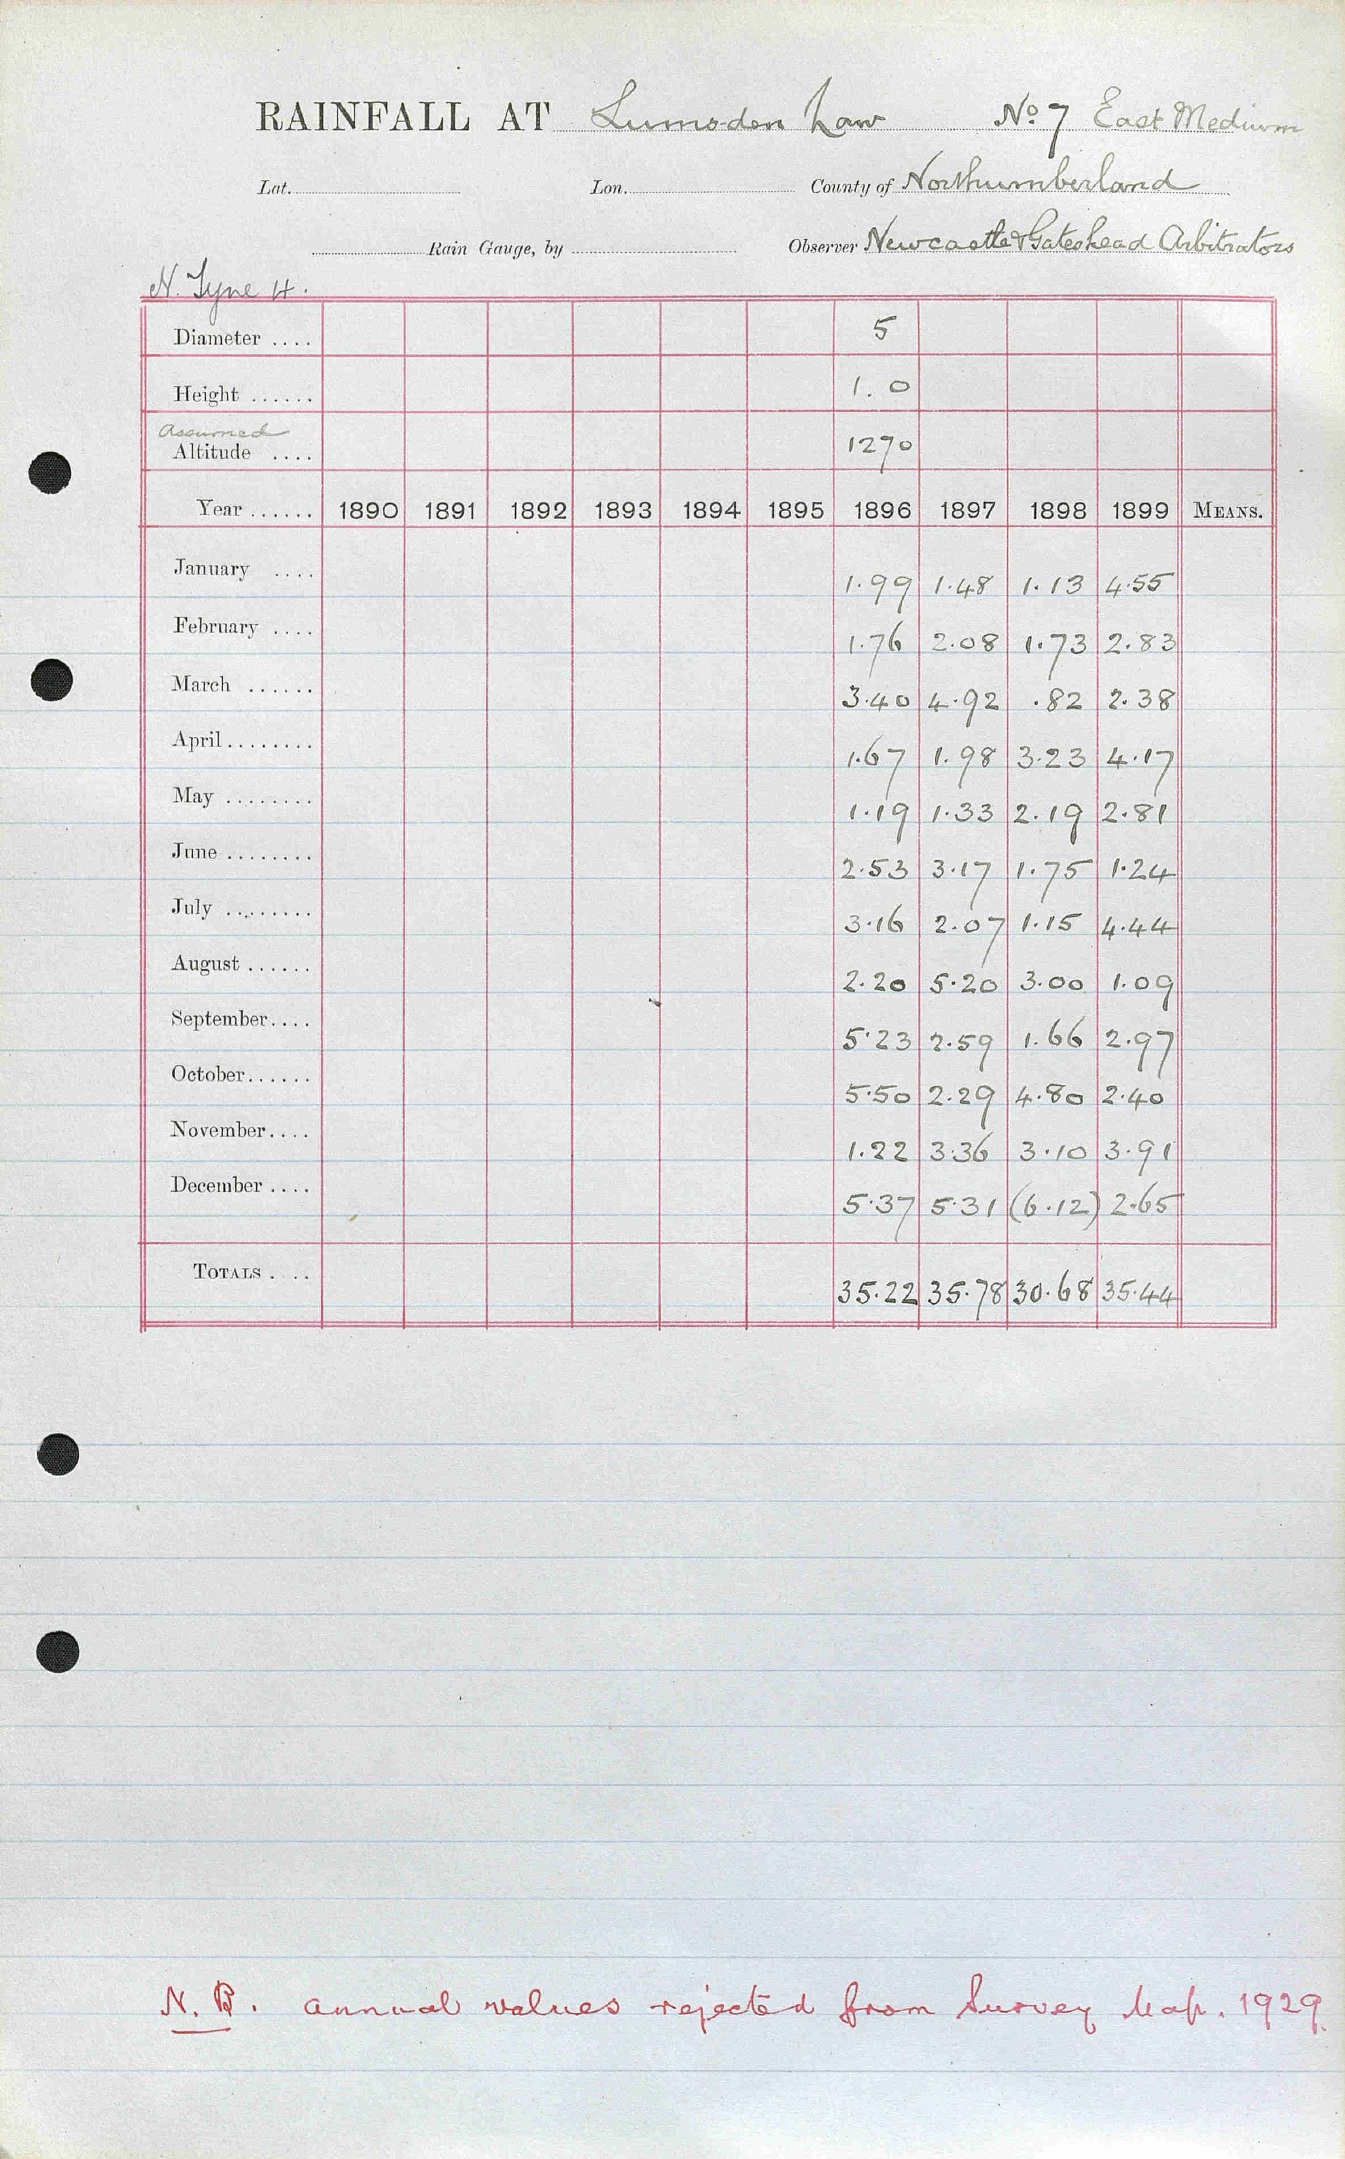 RAINFALL AT Lumsden Law No 7 East Medium
Lat. Lon. County of Northumberland
Rain Gauge, by Observer Newcastle & Gateshead Arbitrators
N. Tyne 4.
Diameter .... 5
Height ...... 1. 0
Assumed
Altitude .... 1270
Year ...... 1890 1891 1892 1893 1894 1895 1896 1897 1898 1899 MEANS.
January .... 1.99 1.48 1.13 4.55
February .... 1.76 2.08 1.73 2.83
March ...... 3.40 4.92 .82 2.38
April ........ 1.67 1.98 3.23 4.17
May ........ 1.19 1.33 2.19 2.81
June ........ 2.53 3.17 1.75 1.24
July ........ 3.16 2.07 1.15 4.44
August ...... 2.20 5.20 3.00 1.09
September.... 5.23 2.59 1.66 2.97
October...... 5.50 2.29 4.80 2.40
November.... 1.22 3.36 3.10 3.91
December .... 5.37 5.31 (6.12) 2.65
TOTALS .... 35.22 35.78 30.68 35.44
N. B. annual values rejected from Survey Map. 1929.